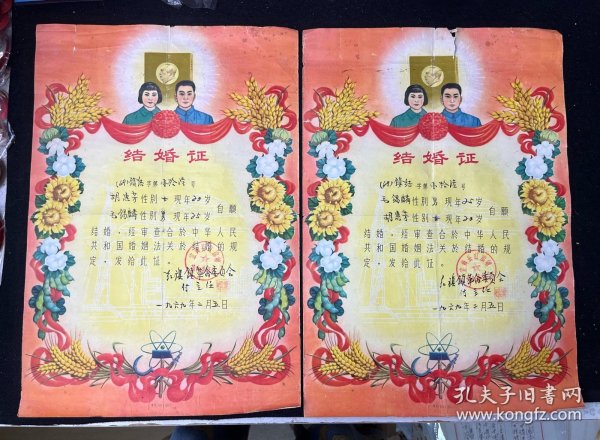 结婚证
胡惠芳性别女现年20岁
毛锡麟性别男现年25岁自愿
结婚，经审查合於中华人民
共和国婚姻法关於结婚的规
定，发给此证。
一九六九年二月五日
结婚证
毛锡麟性别男现年25岁
胡惠芳性别女现年20岁自愿
结婚，经审查合於中华人民
共和国婚姻法关於结婚的规
定，发给此证。
一九六九年二月五日
孔夫子旧书网
www.kongfz.com